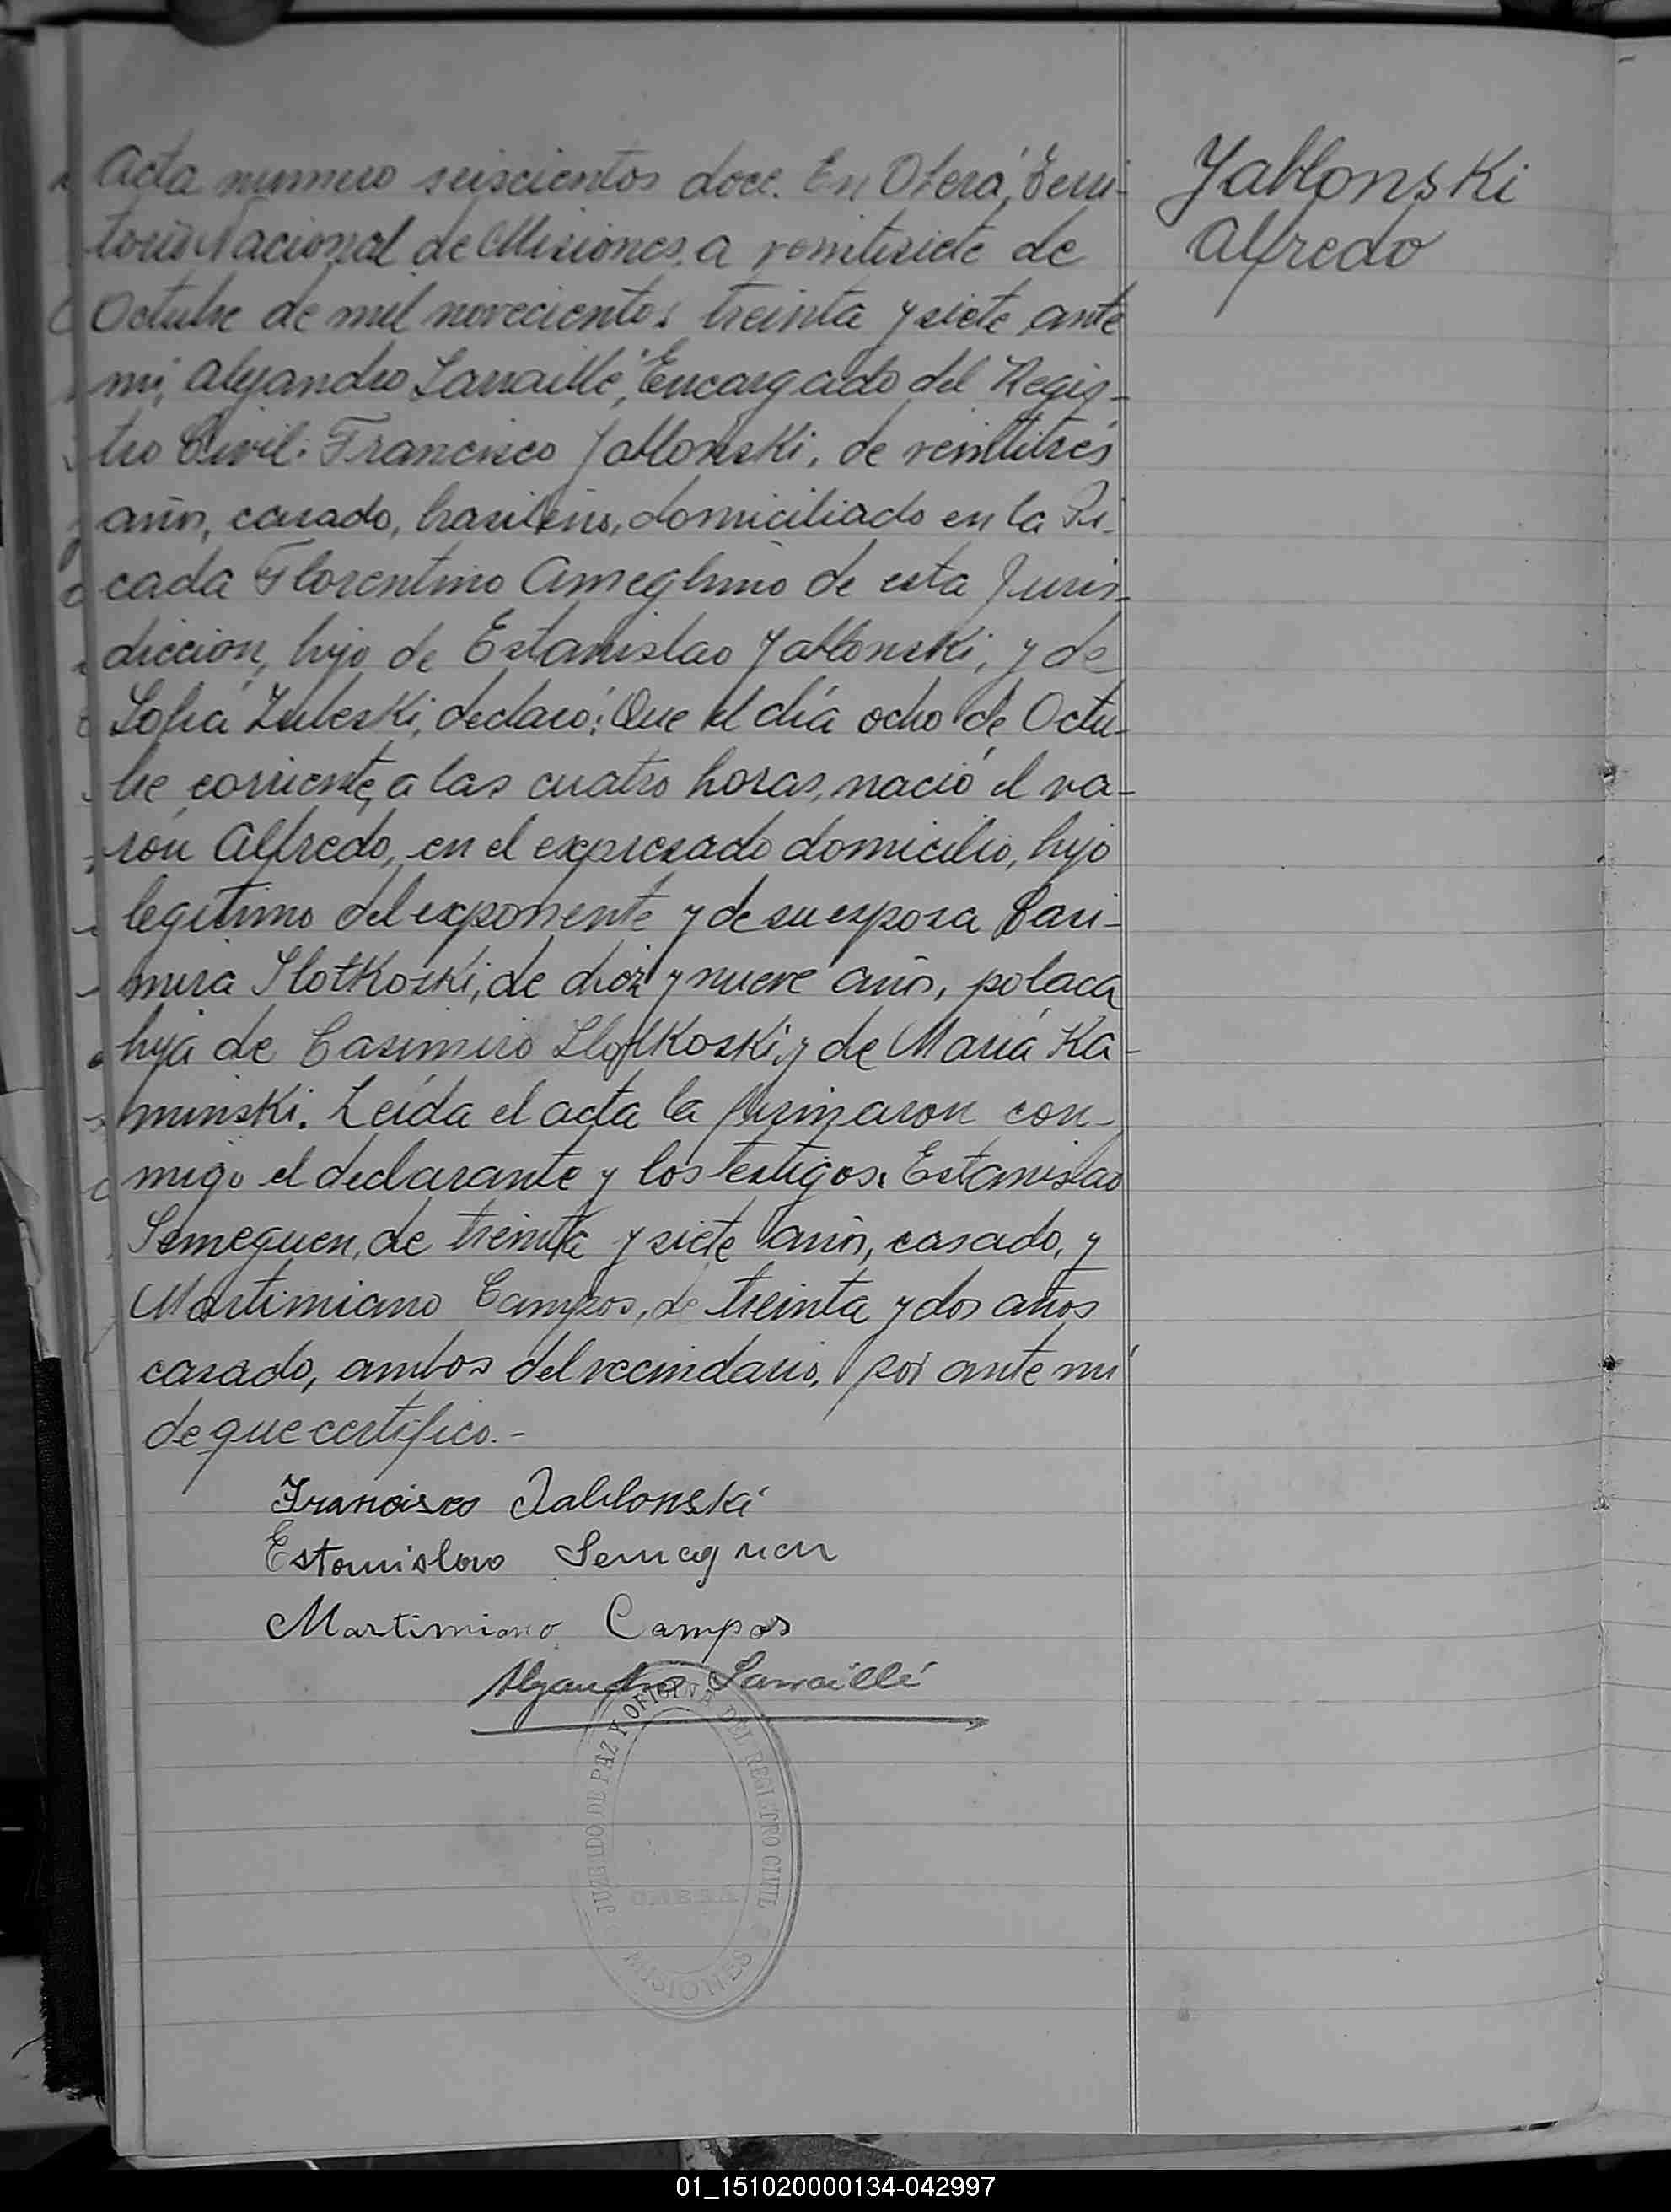 Acta numero seiscientos doce. En Oberá, Terri-
torio Nacional de Misiones, a veintisiete de
Octubre de mil novecientos treinta y siete ante
mi, Alejandro Larraillé, Encargado del Regis-
tro Civil: Francisco Jablonski, de veintitrés
años, casado, brasileño, domiciliado en la Pi-
cada Florentino Ameghino de esta Juris-
dicción, hijo de Estanislao Jablonski, y de
Sofía Zuleski, declaró: Que el día ocho de Octu-
bre corriente, a las cuatro horas, nació el va-
rón Alfredo, en el expresado domicilio, hijo
legítimo del exponente y de su esposa Casi-
mira Slotkoski, de diez y nueve años, polaca
hija de Casimiro Slotkoski, y de María Ka-
minski. Leída el acta la firmaron con-
migo el declarante y los testigos: Estanislao
Semeguen, de treinta y siete años, casado, y
Martimiano Campos, de treinta y dos años
casado, ambos del vecindario, por ante mí
de que certifico.-
Francisco Jablonski
Estanislao Semeguen
Martimiano Campos
Alejandro Larraillé
JUZGADO DE PAZ Y OFICINA DEL REGISTRO CIVIL
OBERA
MISIONES
Jablonski
Alfredo
01_151020000134-042997